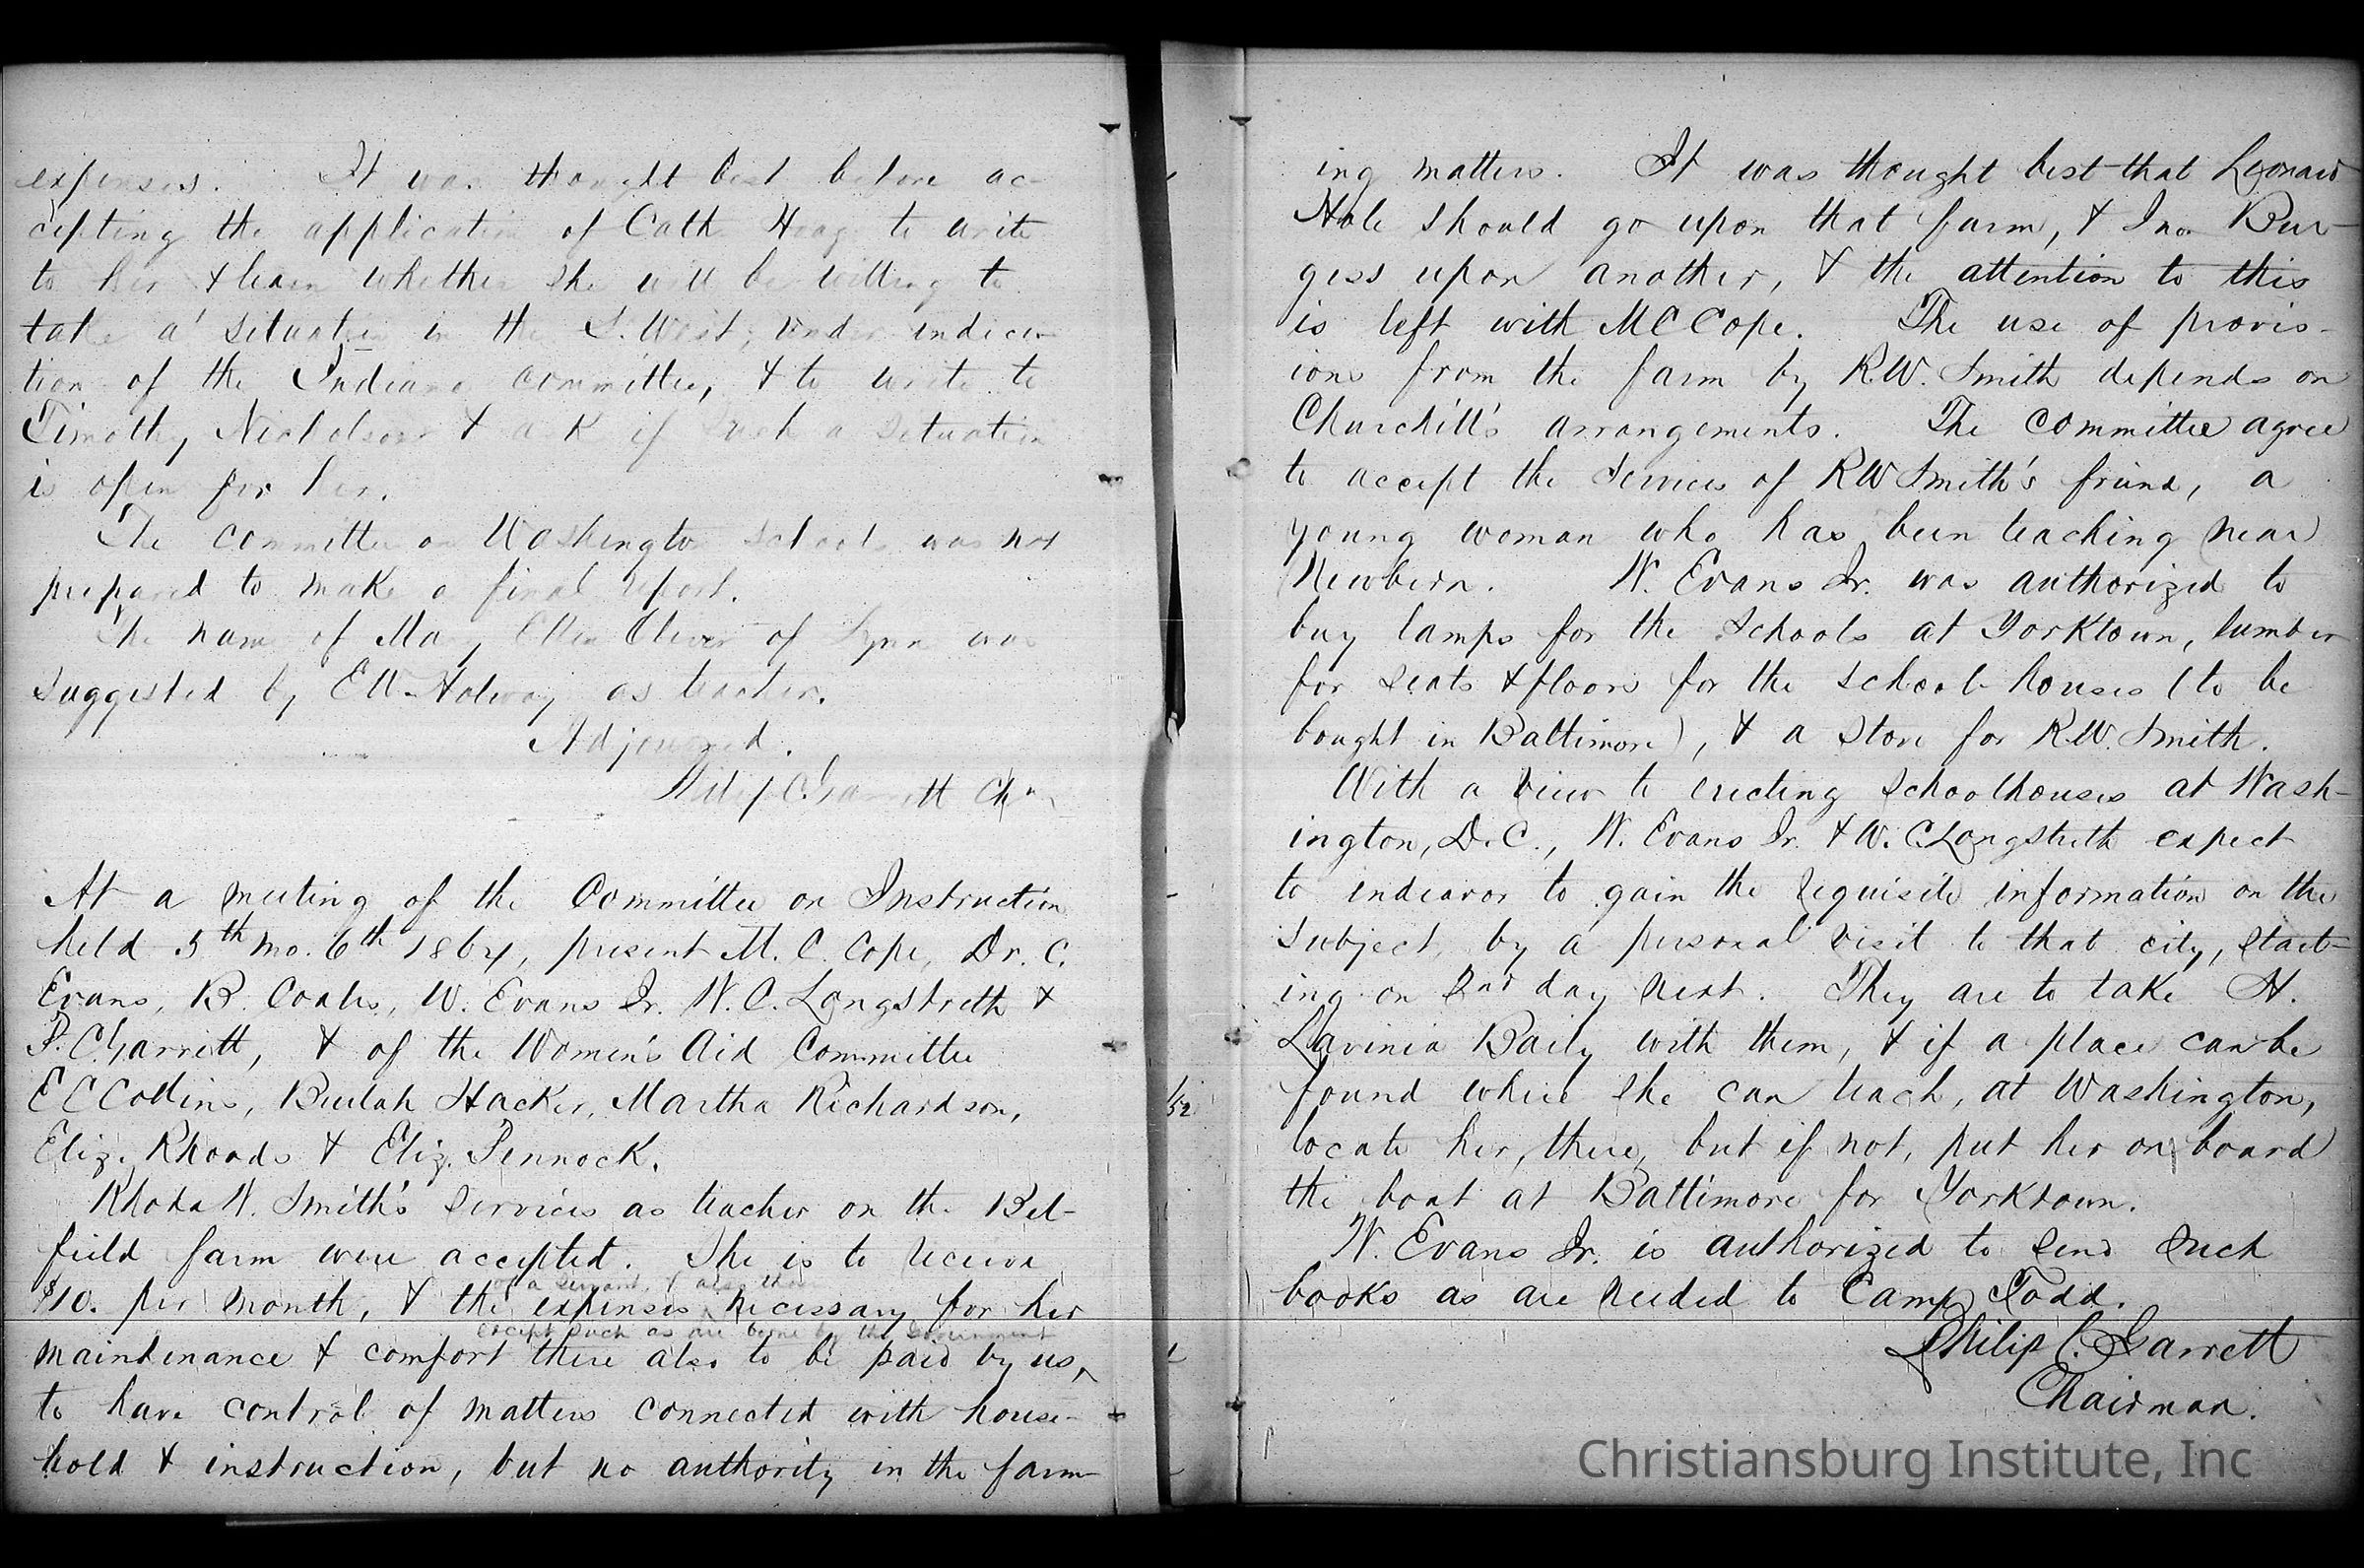 expenses. It was thought best before ac-
cepting the application of Cath Hoag to write
to her & learn whether she will be willing to
take a situation in the S. West, under
tion of the Indiana Committee, & to write to
Timothy Nicholson & ask if such a situation
is open for her.
The committee on Washington schools was not
prepared to make a final report.
The name of Mary Ellen Oliver of Lynn was
suggested by E W Holway as teacher.
Adjourned.
Philip C. Garrett Chn.
At a meeting of the Committee on Instruction
held 5th mo. 6th 1864, present M. C. Cope, Dr. C.
Evans, B. Coates, W. Evans Jr. W. C. Longstreth &
P. C. Garrett, & of the Women's Aid Committee
E C Collins, Beulah Hacker, Martha Richardson,
Eliz. Rhoads & Eliz. Pennock.
Rhoda W. Smith's services as teacher on the Bel-
field farm were accepted. She is to receive
of a servant, & also those
$10. per month, & the expenses necessary for her
except such as are borne by the Government
maintenance & comfort there also to be paid by us,
to have control of matters connected with house-
hold & instruction, but no authority in the farm-
152
ing matters. It was thought best that Leonard
Hole should go upon that farm, & Jno. Bur-
gess upon another, & the attention to this
is left with M C Cope. The use of provis-
ions from the farm by R.W. Smith depends on
Churchill's arrangements. The committee agree
to accept the services of R W Smith's friend, a
young woman who has been teaching near
Newbern. W. Evans Jr. was authorized to
buy lamps for the schools at Yorktown, lumber
for seats & floors for the school houses (to be
bought in Baltimore), & a stove for R.W. Smith.
With a view to erecting schoolhouses at Wash-
ington, D.C., W. Evans Jr. & W. C. Longstreth expect
to endeavor to gain the requisite information on the
subject, by a personal visit to that city, start-
ing on 2nd day next. They are to take H.
Lavinia Baily with them, & if a place can be
found where she can teach, at Washington,
locate her, there, but if not, put her on board
the boat at Baltimore for Yorktown.
W. Evans Jr. is authorized to send such
books as are needed to Camp Todd.
Philip C. Garrett
Chairman.
Christiansburg Institute, Inc